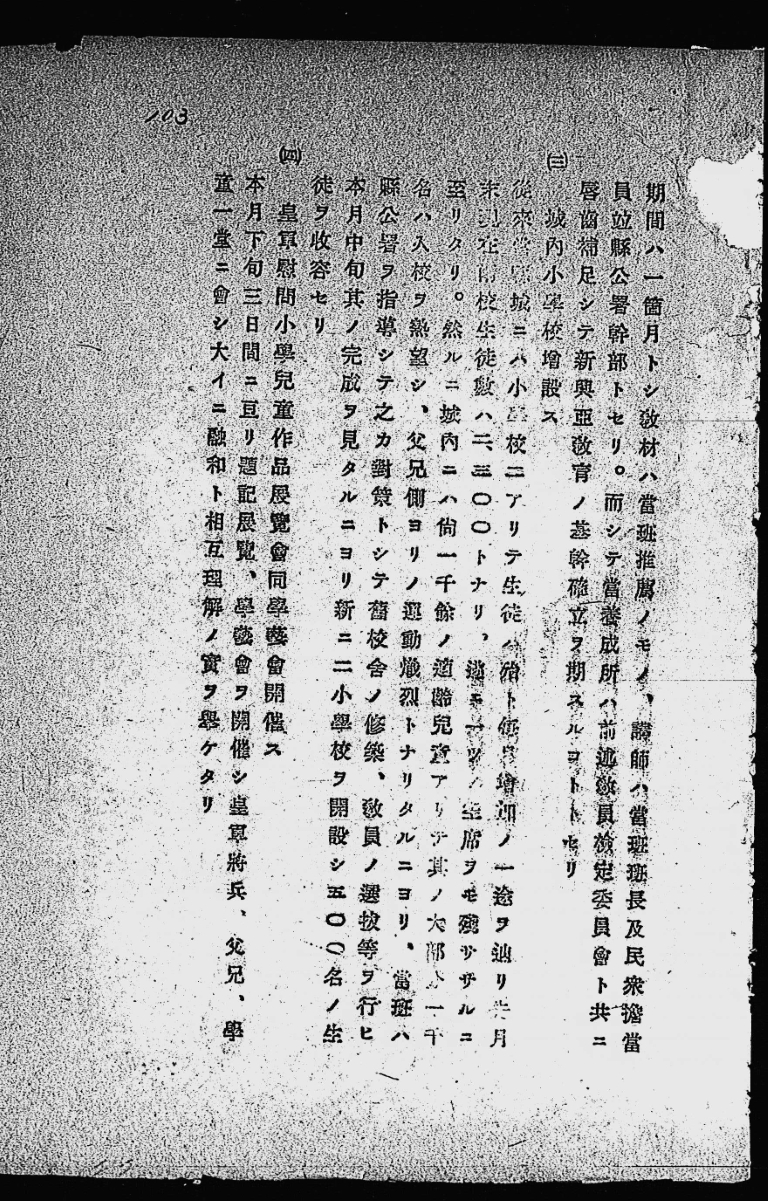 103
期間ハ一箇月トシ敎材ハ當班推薦ノモノ、講師ハ當班班長及民衆擔當
員竝縣公署幹部トセリ。而シテ當養成所ハ前述敎員檢定委員會ト共ニ
唇齒補足シテ新興亞敎育ノ基幹確立ヲ期スルコトトセリ
㈢ 城內小學校增設ス
從來當縣城ニハ小學校二アリテ生徒ハ殆ト每日增加ノ一途ヲ辿リ先月
末現在兩校生徒數ハ二、三〇〇トナリ、遂ニ一ツノ空席ヲモ殘サザルニ
至リタリ。然ルニ城內ニハ尙一千餘ノ適齡兒童アリテ其ノ大部分一千
名ハ入校ヲ熱望シ、父兄側ヨリノ運動熾烈トナリタルニヨリ、當班ハ
縣公署ヲ指導シテ之カ對策トシテ舊校舍ノ修築、敎員ノ選拔等ヲ行ヒ
本月中旬其ノ完成ヲ見タルニヨリ新ニ二小學校ヲ開設シ五〇〇名ノ生
徒ヲ收容セリ
㈣ 皇軍慰問小學兒童作品展覽會同學藝會開催ス
本月下旬三日間ニ亘リ題記展覽、學藝會ヲ開催シ皇軍將兵、父兄、學
童一堂ニ會シ大イニ融和ト相互理解ノ實ヲ擧ケタリ